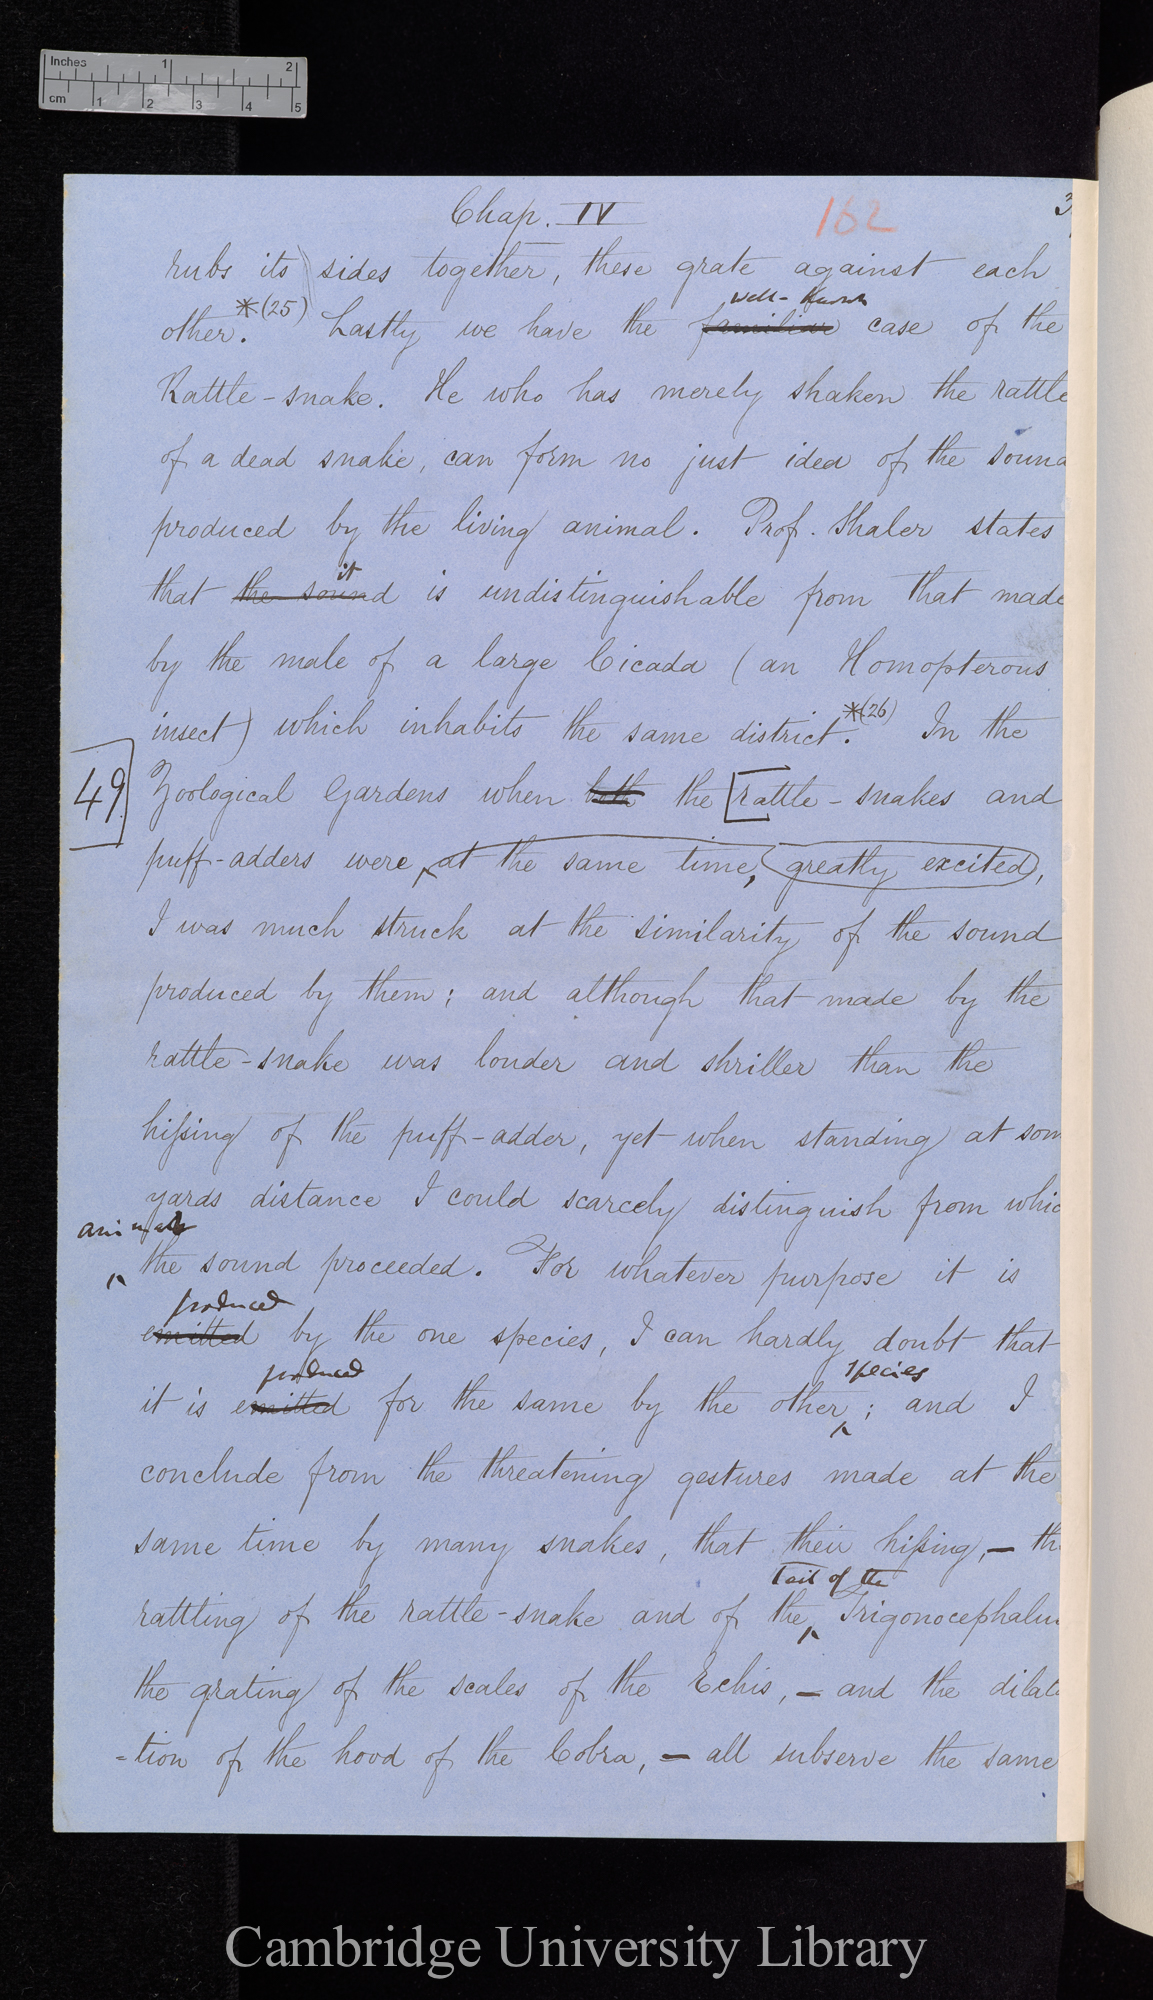 Inches 1 2
cm 1 2 3 4 5
Chap. IV 162 3
rubs its sides together, these grate against each
other.*(25) Lastly we have the familiar well-known case of the
Rattle-snake. He who has merely shaken the rattle
of a dead snake, can form no just idea of the sound
produced by the living animal. Prof. Shaler states
that the sound it is undistinguishable from that made
by the male of a large Cicada (an Homopterous
insect) which inhabits the same district.*(26) In the
49 Zoological Gardens when both the [rattle-snakes and
puff-adders were at the same time, greatly excited,
I was much struck at the similarity of the sound
produced by them; and although that made by the
rattle-snake was louder and shriller than the
hissing of the puff-adder, yet when standing at som
yards distance I could scarcely distinguish from whic
animal
the sound proceeded. For whatever purpose it is
produced
emitted by the one species, I can hardly doubt that
produced species
it is emitted for the same by the other ; and I
conclude from the threatening gestures made at the
same time by many snakes, that their hissing, — th
tail of the
rattling of the rattle-snake and of the Trigonocephalu
the grating of the scales of the Echis, — and the dilata
-tion of the hood of the Cobra, — all subserve the same
Cambridge University Library